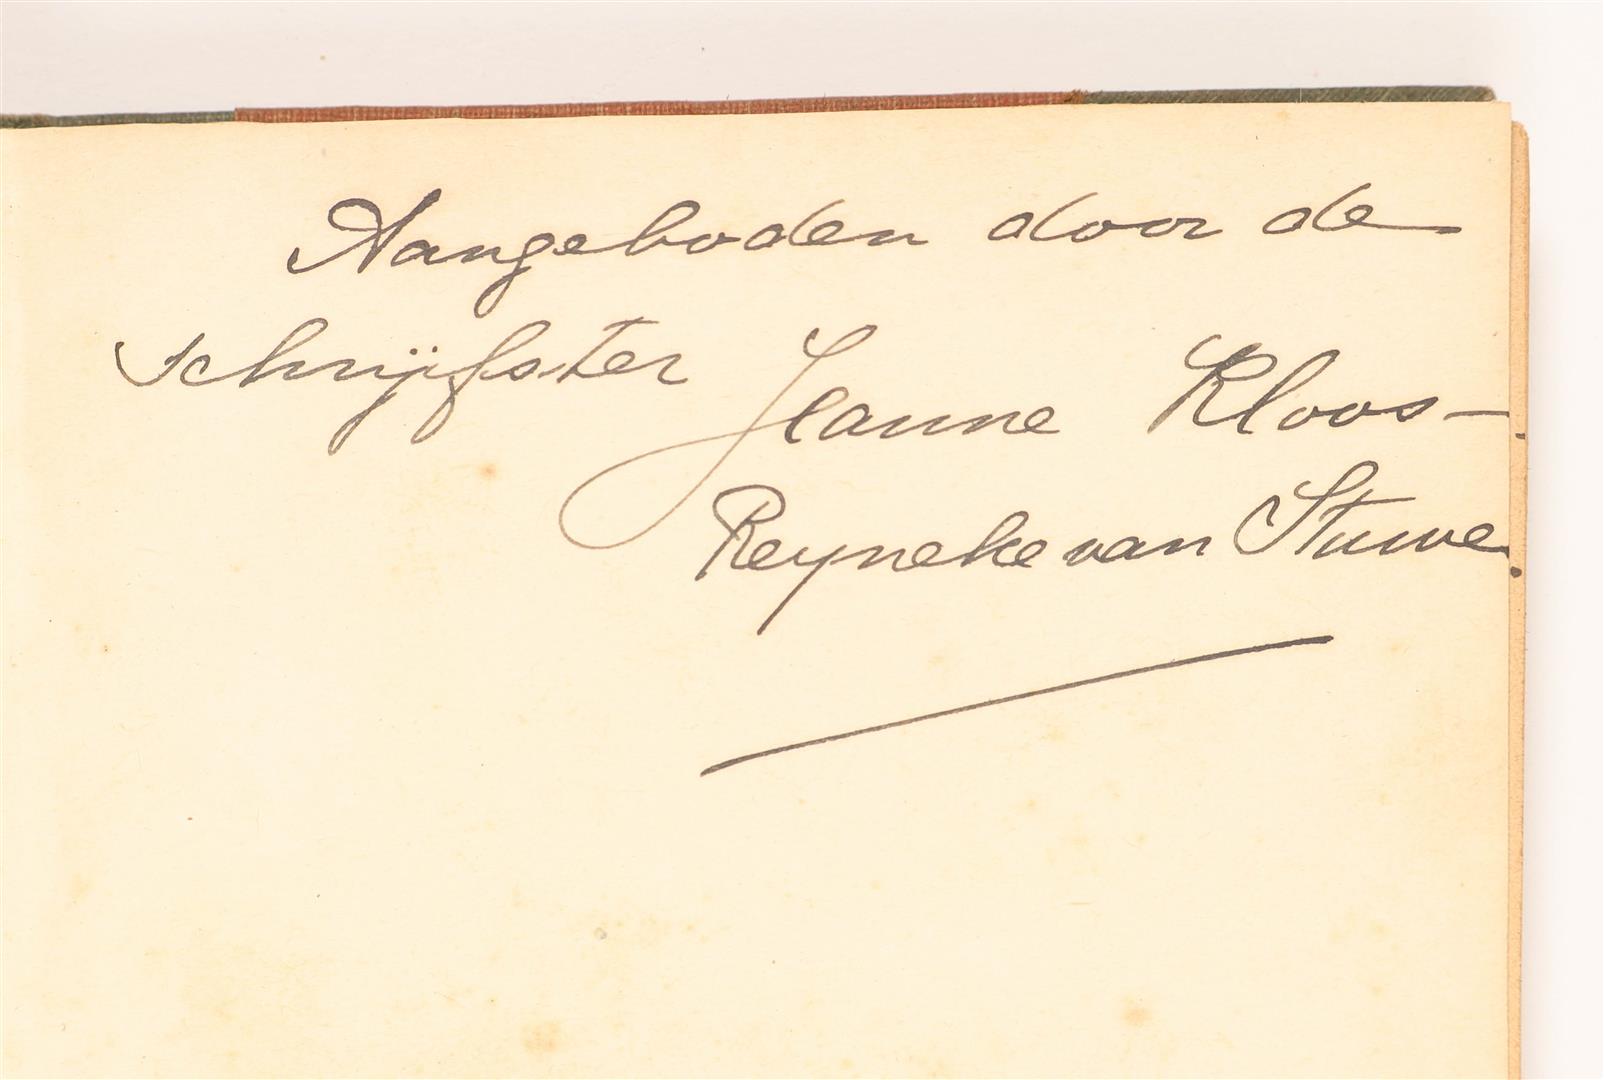 Aangeboden door de
schrijfster Jeanne Kloos-
Reyneke van Stuwe.